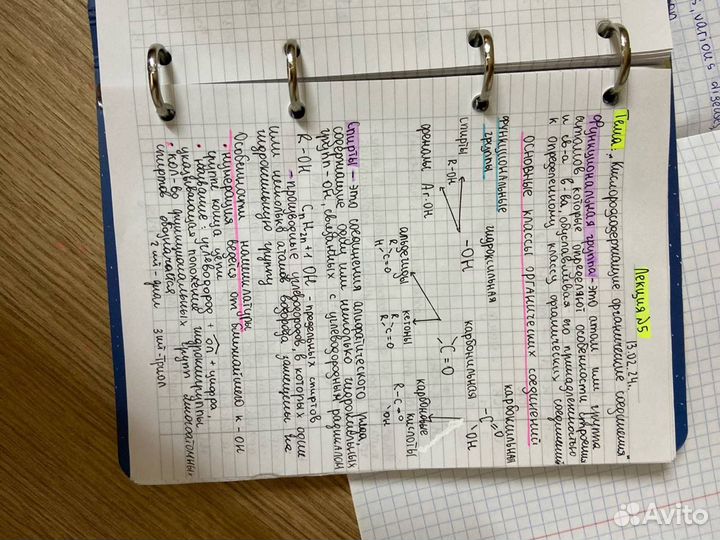 Лекция №5
13.02.24.
Тема „Кислородсодержащие органические соединения"
Функциональная группа - это атом или группа
атомов, которые определяют особенности строения
и св-а в-ва, обуславливая его принадлежностью
к определенному классу органических соединений
ОСНОВНЫЕ КЛАССЫ ОРГАНИЧЕСКИХ СОЕДИНЕНИЙ
функциональные группы
гидроксильная
карбонильная
карбоксильная
-OH
C=O
-C=O OH
спирты R-OH
фенолы Ar-OH
альдегиды R H C=O
кетоны R R C=O
карбоновые кислоты R-C=O OH
Спирты - это соединения алифатического ряда,
содержащие одну или несколько гидроксильных
групп -OH, связанных с углеводородным радикалом
R-OH CnH2n+1 OH - предельных спиртов
- производные углеводородов в которых один
или несколько атомов водорода замещены на
гидроксильную группу
Особенности номенклатуры
• нумерация ведется от ближайшего к -OH
группе конца цепи
• название: углеводород + ол + цифра,
указывающая положение гидроксигруппы
• кол-во функциональных групп
спиртов обозначается
2 -диол 3 -триол
various